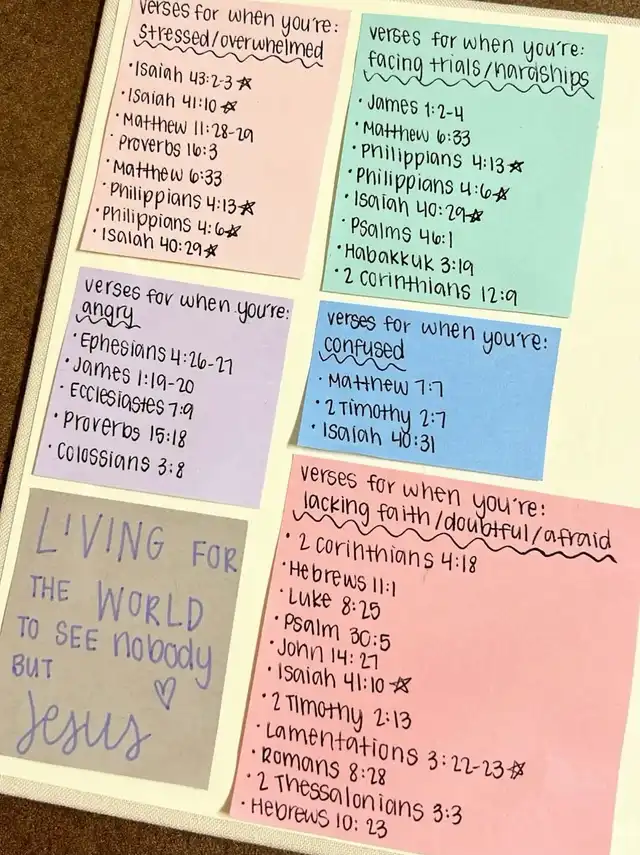 verses for when you're:
stressed/overwhelmed
• Isaiah 43:2-3 ☆
• Isaiah 41:10 ☆
• Matthew 11:28-29
• Proverbs 16:3
• Matthew 6:33
• Philippians 4:13 ☆
• Philippians 4:6 ☆
• Isaiah 40:29 ☆
verses for when you're:
facing trials/hardships
• James 1:2-4
• Matthew 6:33
• Philippians 4:13 ☆
• Philippians 4:6 ☆
• Isaiah 40:29 ☆
• Psalms 46:1
• Habakkuk 3:19
• 2 Corinthians 12:9
verses for when you're:
angry
• Ephesians 4:26-27
• James 1:19-20
• Ecclesiastes 7:9
• Proverbs 15:18
• Colossians 3:8
verses for when you're:
confused
• Matthew 7:7
• 2 Timothy 2:7
• Isaiah 40:31
LIVING FOR
THE WORLD
TO SEE nobody
BUT
Jesus
verses for when you're:
lacking faith/doubtful/afraid
• 2 Corinthians 4:18
• Hebrews 11:1
• Luke 8:25
• Psalm 30:5
• John 14:27
• Isaiah 41:10 ☆
• 2 Timothy 2:13
• Lamentations 3:22-23 ☆
• Romans 8:28
• 2 Thessalonians 3:3
• Hebrews 10:23